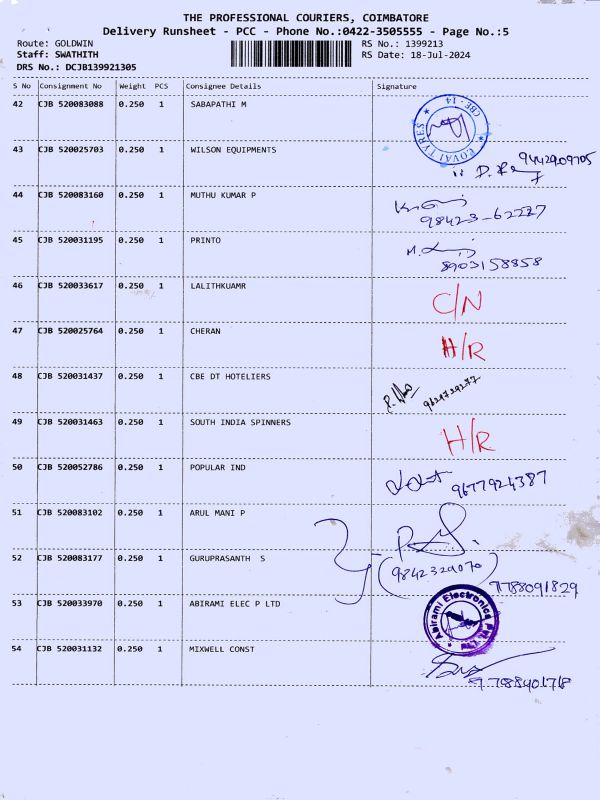 THE PROFESSIONAL COURIERS, COIMBATORE
Delivery Runsheet - PCC - Phone No.:0422-3505555 - Page No.:5
Route: GOLDWIN RS No.: 1399213
Staff: SWATHITH RS Date: 18-Jul-2024
DRS No.: DCJB139921305
S No Consignment No Weight PCS Consignee Details Signature
42 CJB 520083088 0.250 1 SABAPATHI M
KOVAI TYRES CBE - 14
43 CJB 520025703 0.250 1 WILSON EQUIPMENTS 9442909705
44 CJB 520083160 0.250 1 MUTHU KUMAR P
98423-62277
45 CJB 520031195 0.250 1 PRINTO
8903158858
46 CJB 520033617 0.250 1 LALITHKUAMR C/N
47 CJB 520025764 0.250 1 CHERAN H/R
48 CJB 520031437 0.250 1 CBE DT HOTELIERS
49 CJB 520031463 0.250 1 SOUTH INDIA SPINNERS H/R
50 CJB 520052786 0.250 1 POPULAR IND 9677924387
51 CJB 520083102 0.250 1 ARUL MANI P
52 CJB 520083177 0.250 1 GURUPRASANTH S (9842329070)
7788091829
53 CJB 520033970 0.250 1 ABIRAMI ELEC P LTD Abirami Electronics Pvt. Ltd.
54 CJB 520031132 0.250 1 MIXWELL CONST